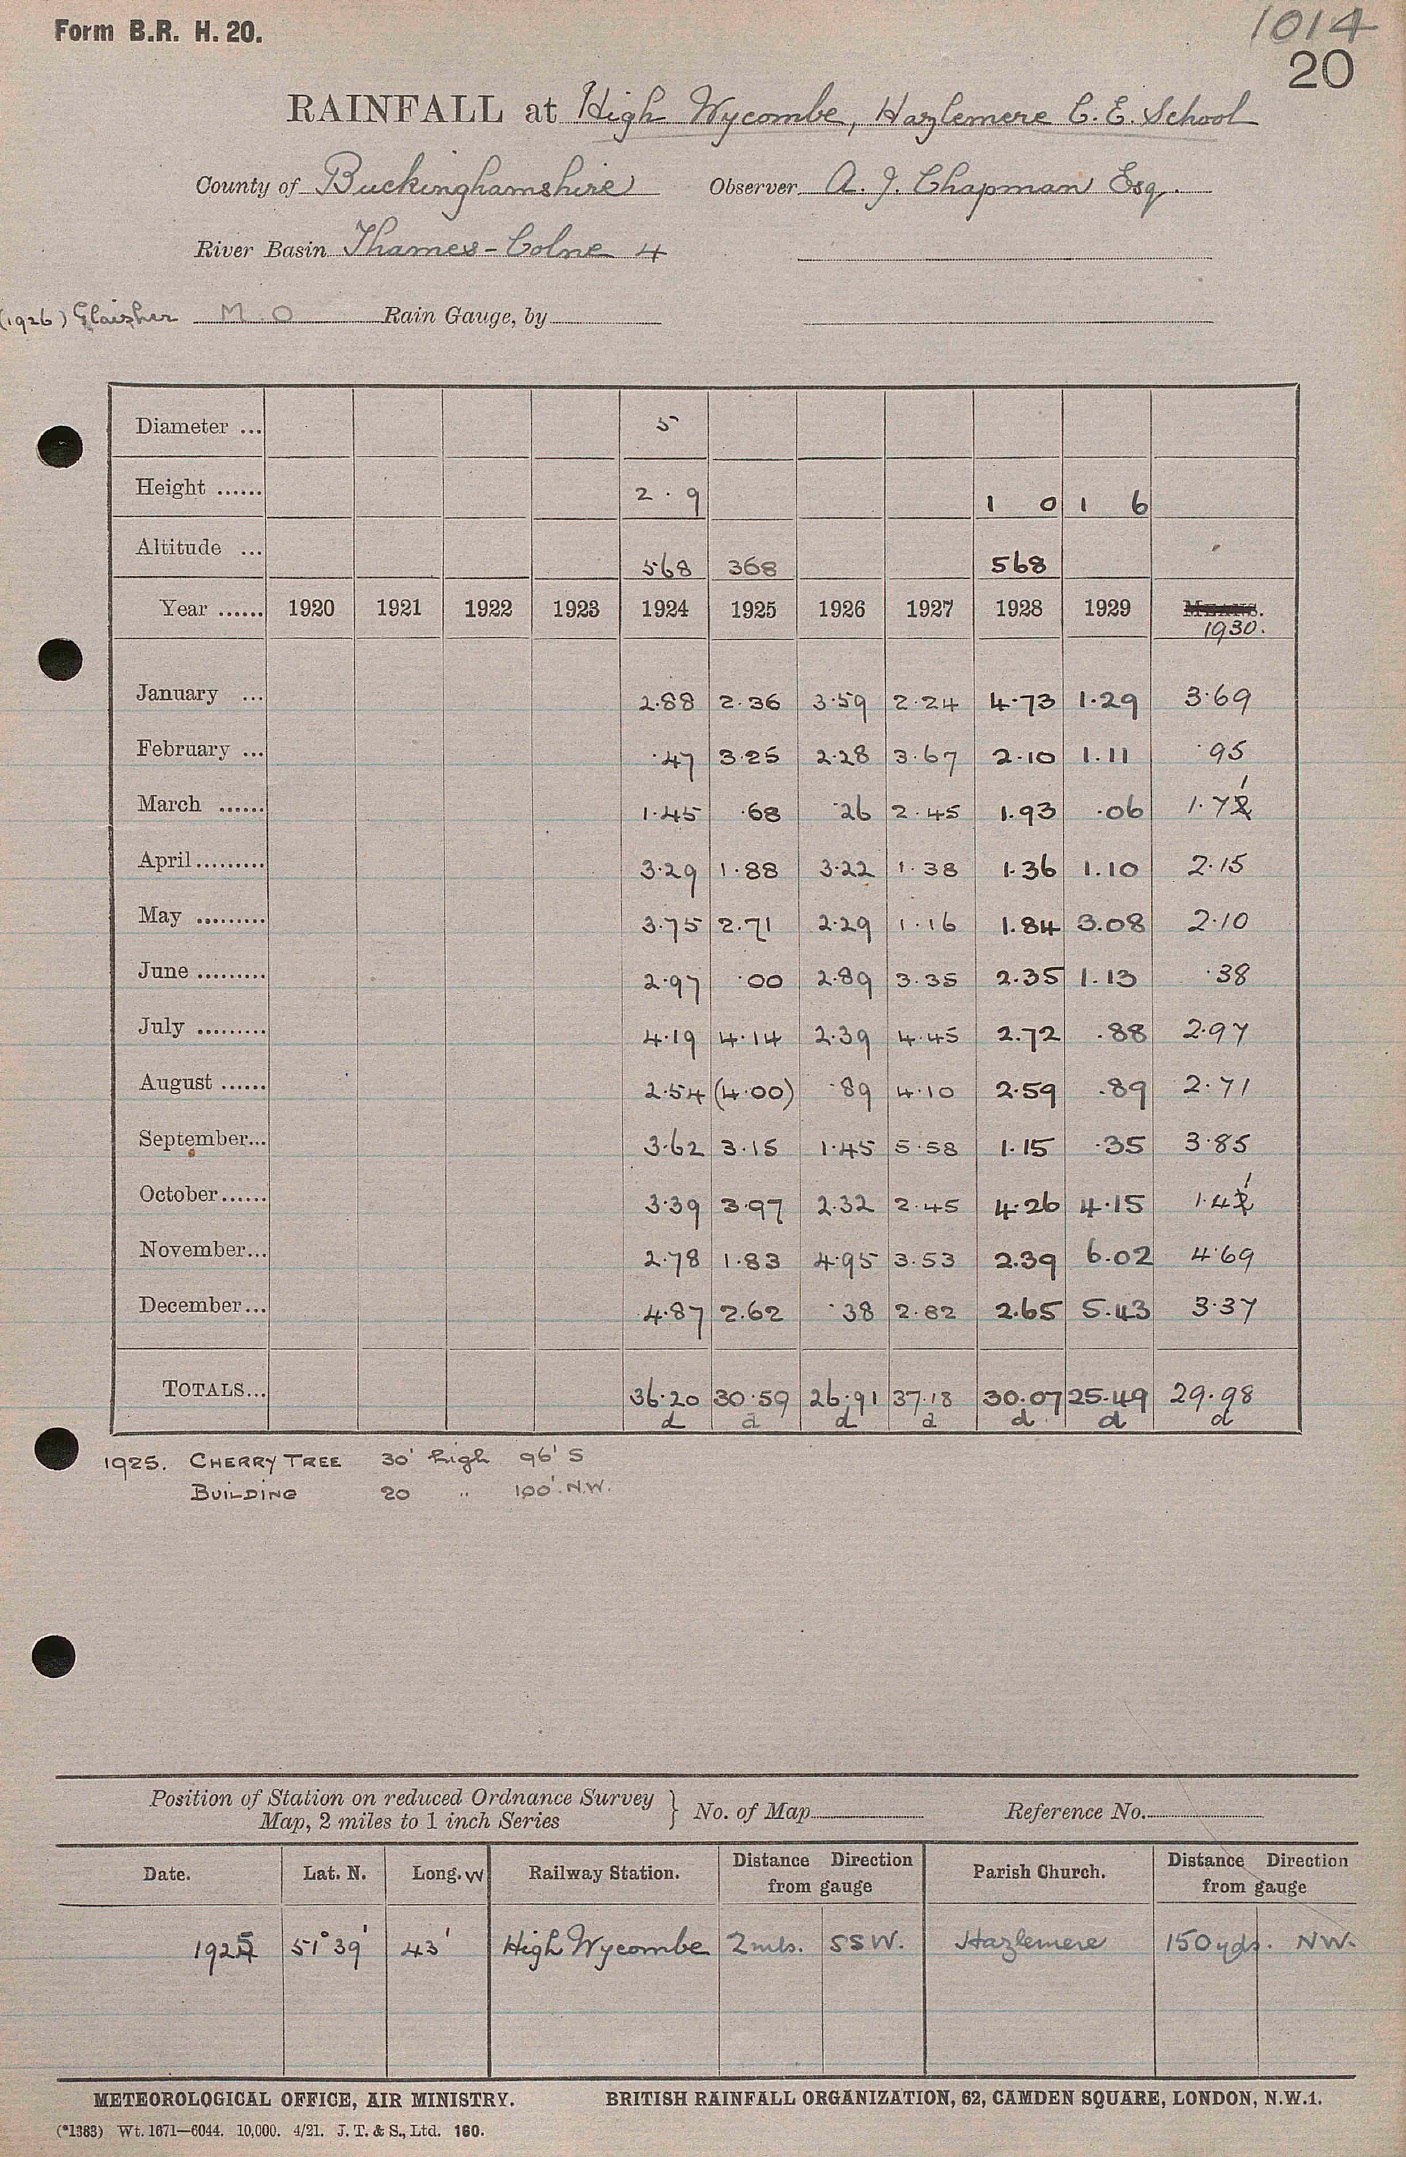 Form B.R. H. 20.
1014
20
RAINFALL at High Wycombe, Hazlemere C. E. School
County of Buckinghamshire Observer A. J. Chapman Esq.
River Basin Thames-Colne 4
(1926) Glaisher M O Rain Gauge, by
Diameter ... 5
Height ...... 2 . 9 1 0 1 6
Altitude ... 568 368 568
Year ...... 1920 1921 1922 1923 1924 1925 1926 1927 1928 1929 MEANS.
1930.
January ... 2.88 2.36 3.59 2.24 4.73 1.29 3.69
February ... .47 3.25 2.28 3.67 2.10 1.11 .95
March ...... 1.45 .68 .26 2.45 1.93 .06 1.71
April......... 3.29 1.88 3.22 1.38 1.36 1.10 2.15
May ......... 3.75 2.71 2.29 1.16 1.84 3.08 2.10
June ......... 2.97 .00 2.89 3.35 2.35 1.13 .38
July ......... 4.19 4.14 2.39 4.45 2.72 .88 2.97
August ...... 2.54 (4.00) .89 4.10 2.59 .89 2.71
September... 3.62 3.15 1.45 5.58 1.15 .35 3.85
October...... 3.39 3.97 2.32 2.45 4.26 4.15 1.41
November... 2.78 1.83 4.95 3.53 2.39 6.02 4.69
December... 4.87 2.62 .38 2.82 2.65 5.43 3.37
TOTALS... 36.20 30.59 26.91 37.18 30.07 25.49 29.98
d a d a d d d
1925. CHERRY TREE 30' high 96' S
BUILDING 20 " 100' N.W.
Position of Station on reduced Ordnance Survey
Map, 2 miles to 1 inch Series } No. of Map Reference No.
Date. Lat. N. Long. W Railway Station. Distance Direction from gauge Parish Church. Distance Direction from gauge
1925 51° 39' 43' High Wycombe 2 mls. SSW. Hazlemere 150 yds. NW.
METEOROLOGICAL OFFICE, AIR MINISTRY. BRITISH RAINFALL ORGANIZATION, 62, CAMDEN SQUARE, LONDON, N.W.1.
(*1383) Wt. 1671—6044. 10,000. 4/21. J. T. & S., Ltd. 160.